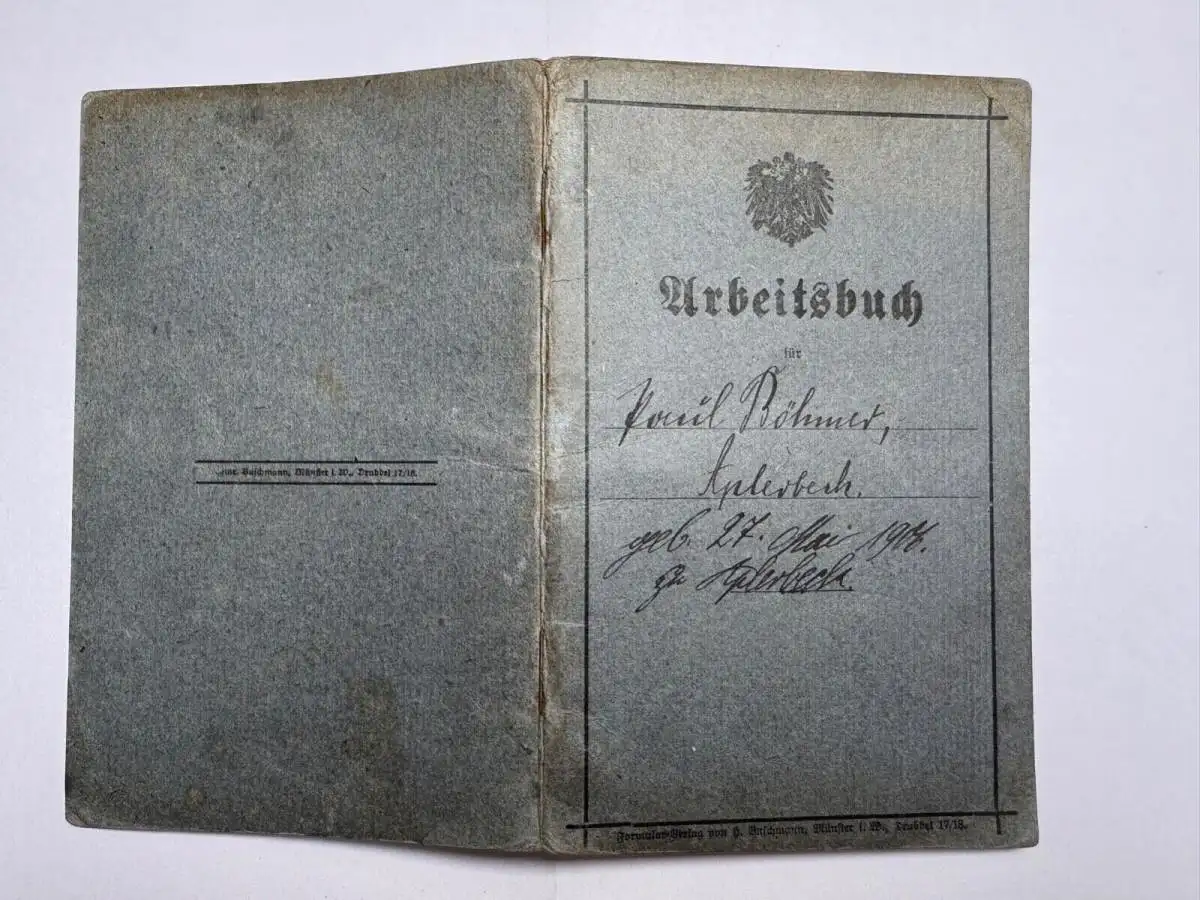 Buschmann, Münster i. W., Drubbel 17/18.
Arbeitsbuch
für
Paul Böhmer,
Aplerbeck.
geb. 27. Mai
zu Aplerbeck.
Formular-Verlag von H. Buschmann, Münster i. W., Drubbel 17/18.